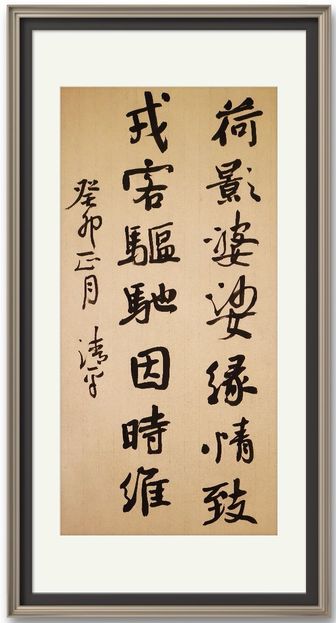 荷影婆娑緣情致
戎客驅馳因時維
癸卯正月 清平